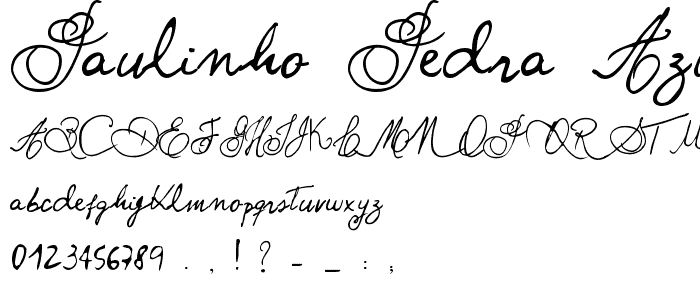 Paulinho Pedra Azu
ABCDEFGHIJKLMNOPQRSTU
abcdefghijklmnopqrstuvwxyz
0123456789 . , ! ? - _ : ;